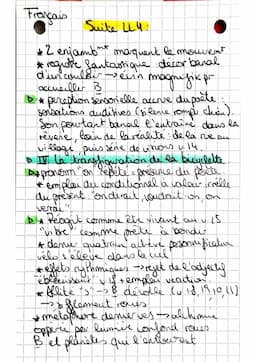 Français
Suite LL4
* 2 enjambmt marquent le mouvement
* registre fantastique décor banal
d'un couloir → écrin magnifique pr
accueillir B
* perception sensorielle accrue du poète :
sensations auditives (silence rompu chien).
Son pourtant banal l'entraîne dans la
rêverie, loin de la réalité : de la rue au
village, puis série de visions v 14.
IV La transfiguration de la bicyclette
* pronom "on" répété = présence du poète
* emploi du conditionnel à valeur irréelle
du présent "on dirait, voudrait on, on
verrai"
* Réagit comme être vivant au v 15
"vibre comme prête à bondir"
* dernier quatrain achève personnification
vélo s'élève dans le ciel
* effets rythmiques → rejet de l'adjectif
v 18 + emploi
* Allité "S" → B dévoile (v 18, 19, 10, 11)
→ sifflement roues
* métaphore dernier vers → alchimie
opérée par lumière confond roues
B et planètes qui l'entourent